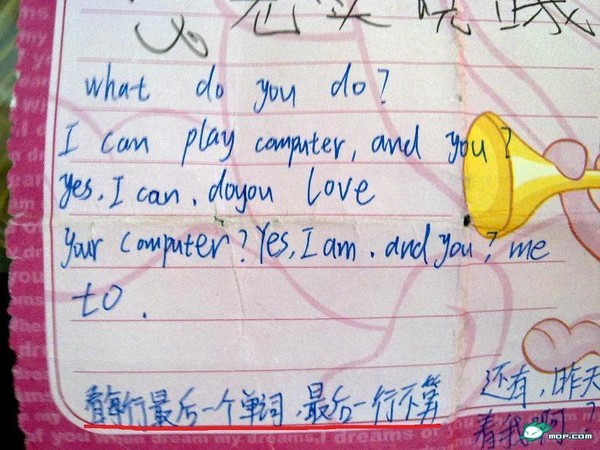 what do you do?
I can play computer, and you?
yes. I can. doyou love
your computer? Yes, I am. and you? me
to.
看每行最后一个单词,最后一行不算
还有,昨天
着我啊?
of you when dream my dreams, I dreams
MOP.COM